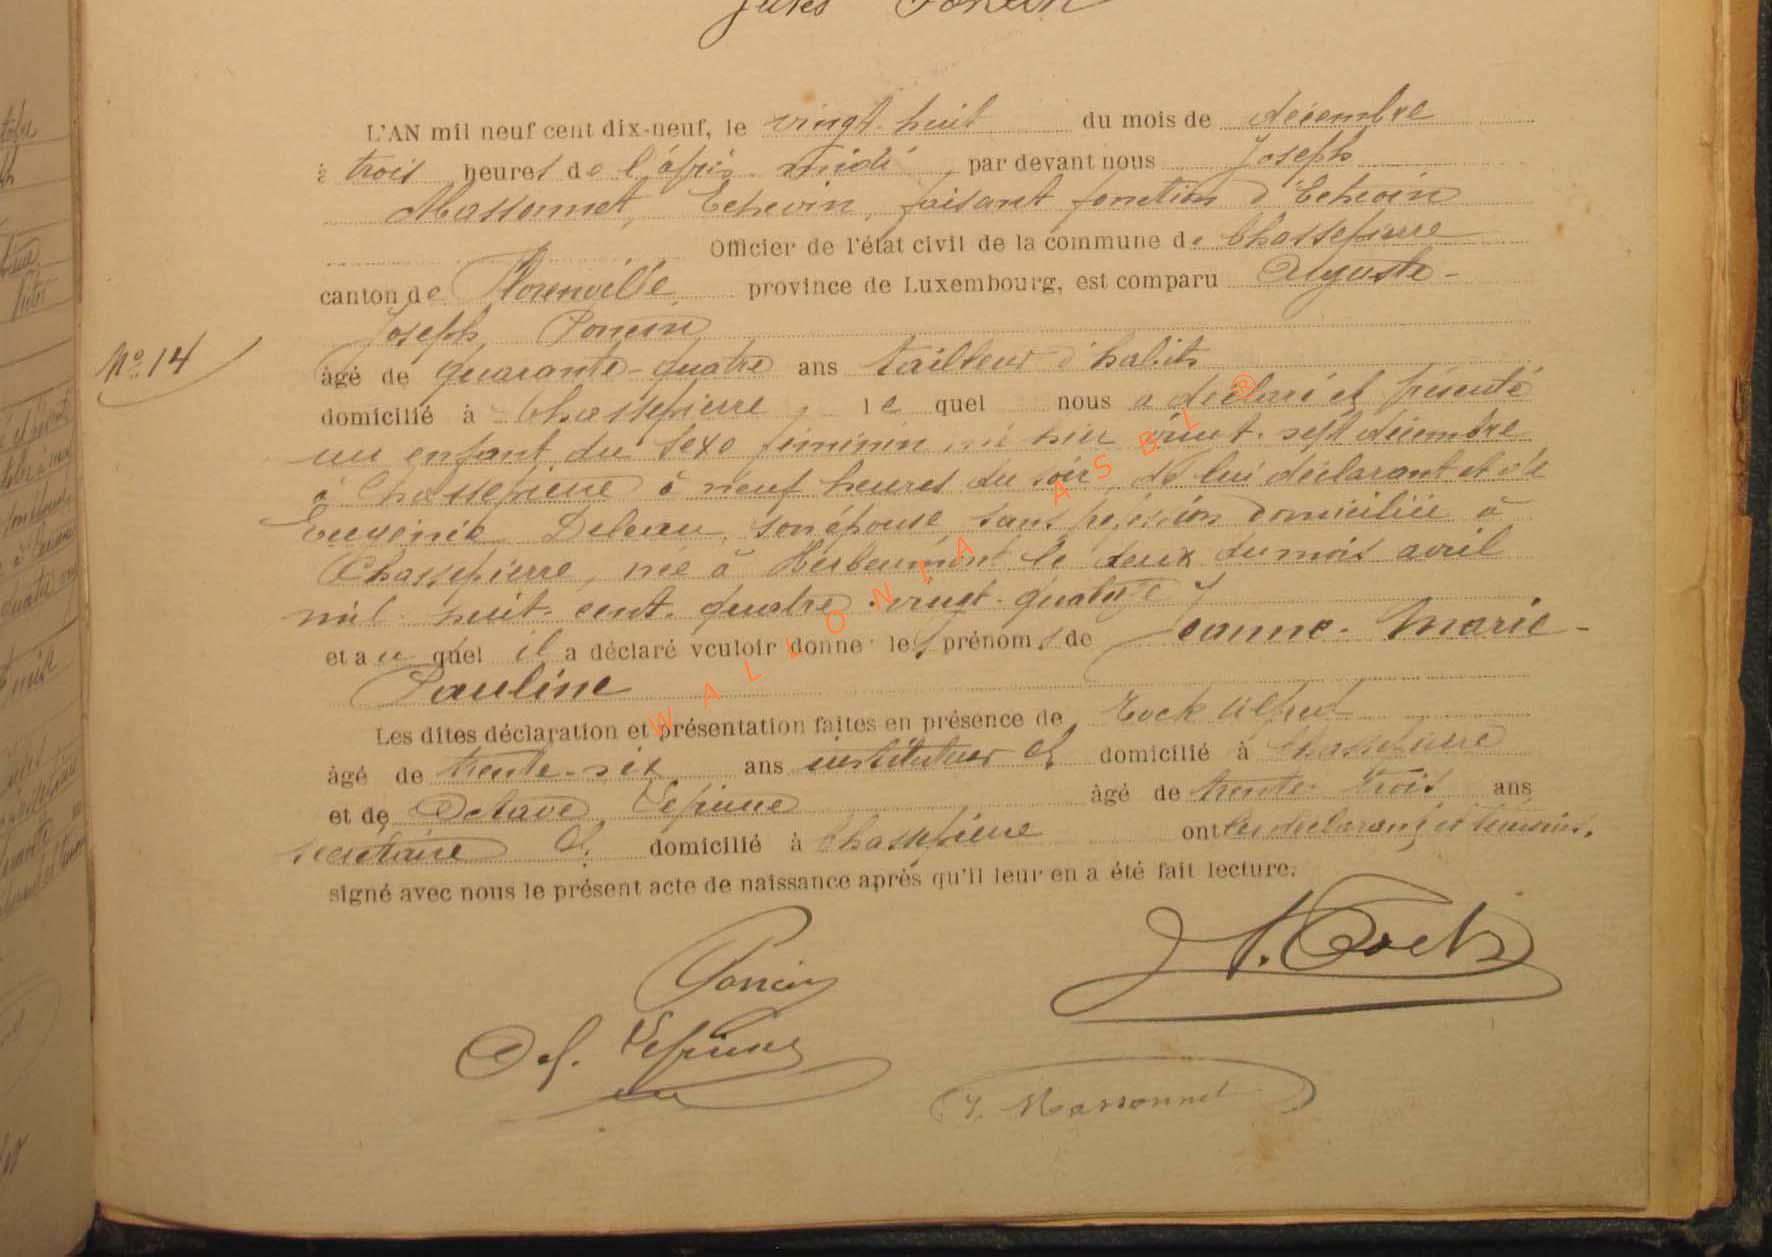 Jules Poncin
L'AN mil neuf cent dix-neuf, le vingt-huit du mois de décembre
à trois heures de l'après-midi par devant nous Joseph
Massonnet, Echevin, faisant fonction d'Echevin
Officier de l'état civil de la commune de Chassepierre
canton de Florenville province de Luxembourg, est comparu Auguste-
Joseph Poncin
N° 14
âgé de quarante-quatre ans tailleur d'habits
domicilié à Chassepierre, le quel nous a déclaré et présenté
un enfant du sexe féminin, né hier vingt-sept décembre
à Chassepierre à neuf heures du soir, de lui déclarant et de
Eugénie, son épouse, sans profession domiciliée à
Chassepierre, née à Herbeumont le deux du mois avril
mil huit-cent-quatre-vingt-quatre
et au quel il a déclaré vouloir donner les prénoms de Jeanne-Marie-
Pauline
Les dites déclaration et présentation faites en présence de Rock Alfred
âgé de trente-six ans instituteur Cl domicilié à Chassepierre
et de Octave Lepinne âgé de trente-trois ans
secrétaire Cl. domicilié à Chassepierre ont les déclarant et témoins.
signé avec nous le présent acte de naissance après qu'il leur en a été fait lecture.
Poncin A. Rock
Oct. Lepinne
J. Massonnet
WALLONIA ASBL ®